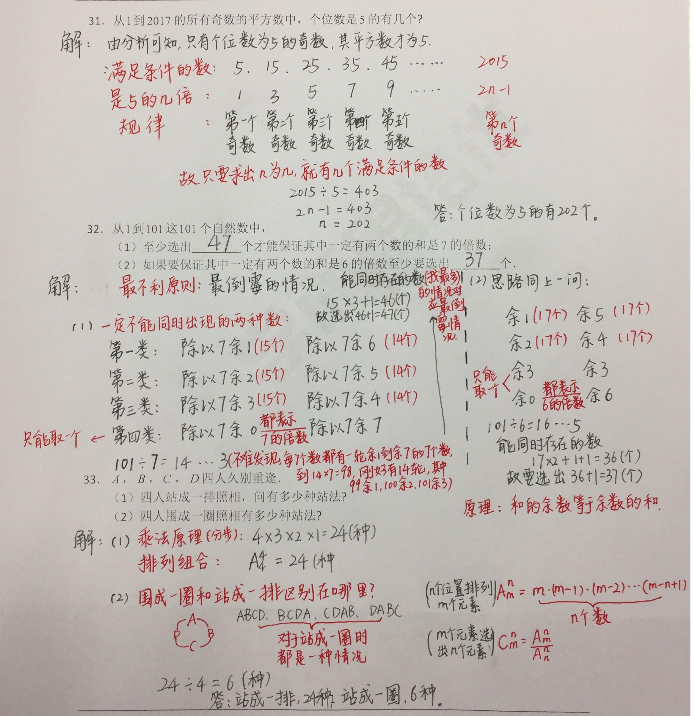 31. 从1到2017的所有奇数的平方数中，个位数是5的有几个?
解: 由分析可知,只有个位数为5的奇数,其平方数才为5.
满足条件的数: 5、15、25、35、45 …… 2015
是5的几倍: 1 3 5 7 9 …… 2n-1
规律: 第一个奇数 第二个奇数 第三个奇数 第四个奇数 第五个奇数 第n个奇数
故只要求出n为几,就有几个满足条件的数
2015÷5=403
2n-1=403
n=202
答:个位数为5的有202个。
32. 从1到101这101个自然数中,
(1) 至少选出 47 个才能保证其中一定有两个数的和是7的倍数;
(2) 如果要保证其中一定有两个数的和是6的倍数至少要选出 37 个.
解: 最不利原则: 最倒霉的情况,能同时存在的数(找最多的情况对应最倒霉情况
15×3+1=46(个)
故选出46+1=47(个)
(1) 一定不能同时出现的两种数:
第一类: 除以7余1(15个) 除以7余6(14个)
第二类: 除以7余2(15个) 除以7余5(14个)
第三类: 除以7余3(15个) 除以7余4(14个)
只能取一个 ← 第四类: 除以7余0 都表示7的倍数 除以7余7
101÷7=14…3(不难发现,每7个数都有一轮余1到余7的7个数,
到14×7=98,刚好有14轮,其中
99余1,100余2,101余3)
(2) 思路同上一问:
余1(17个) 余5(17个)
余2(17个) 余4(17个)
只能取一个 余3 余3
余0 都表示6的倍数 余6
101÷6=16…5
能同时存在的数
17×2+1+1=36(个)
故要选出36+1=37(个)
原理: 和的余数等于余数的和.
33. A, B, C, D四人久别重逢.
(1) 四人站成一排照相,问有多少种站法?
(2) 四人围成一圈照相有多少种站法?
解: (1) 乘法原理(分步): 4×3×2×1=24(种)
排列组合: A₄⁴=24(种
(2) 围成一圈和站成一排区别在哪里?
ABCD、BCDA、CDAB、DABC
A B C D
对于站成一圈时
都是一种情况
(n个位置排列m个元素) Aₘⁿ=m·(m-1)·(m-2)…(m-n+1)
n个数
(m个元素选出n个元素) Cₘⁿ=Aₘⁿ/Aₙⁿ
24÷4=6(种)
答:站成一排,24种;站成一圈,6种。